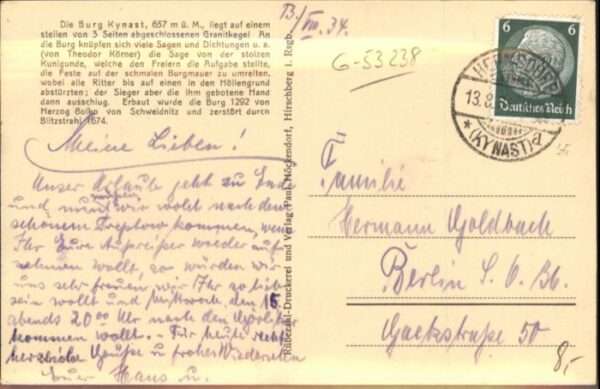 Die Burg Kynast, 657 m ü. M., liegt auf einem
steilen von 3 Seiten abgeschlossenen Granitkegel. An
die Burg knüpfen sich viele Sagen und Dichtungen u. a.
(von Theodor Körner) die Sage von der stolzen
Kunigunde, welche den Freiern die Aufgabe stellte,
die Feste auf der schmalen Burgmauer zu umreiten,
wobei alle Ritter bis auf einen in den Höllengrund
abstürzten; der Sieger aber die ihm gebotene Hand
dann ausschlug. Erbaut wurde die Burg 1292 von
Herzog Bolko von Schweidnitz und zerstört durch
Blitzstrahl 1674.
13./VIII. 34.
G-53238
6 6
Deutsches Reich
13.8.
(KYNAST)
Meine Lieben!
Unser Urlaub geht zu Ende
und wir wohl nach dem
schönen Treptow kommen, wenn
Ihr Eure wieder auf-
nehmen wollt, so würden wir
uns sehr freuen, wenn Ihr so lieb
sein wollt und Mittwoch, den 15.
abends 20 00 Uhr nach dem Görlitzer
kommen wollt. - Für heute recht
herzliche Grüße u. frohes Wiedersehen
Euer Hans u.
Rübezahl-Druckerei und Verlag Paul Höckendorf, Hirschberg i. Rsgb.
Familie
Hermann Goldbach
Berlin S. O. 36.
50
8,-